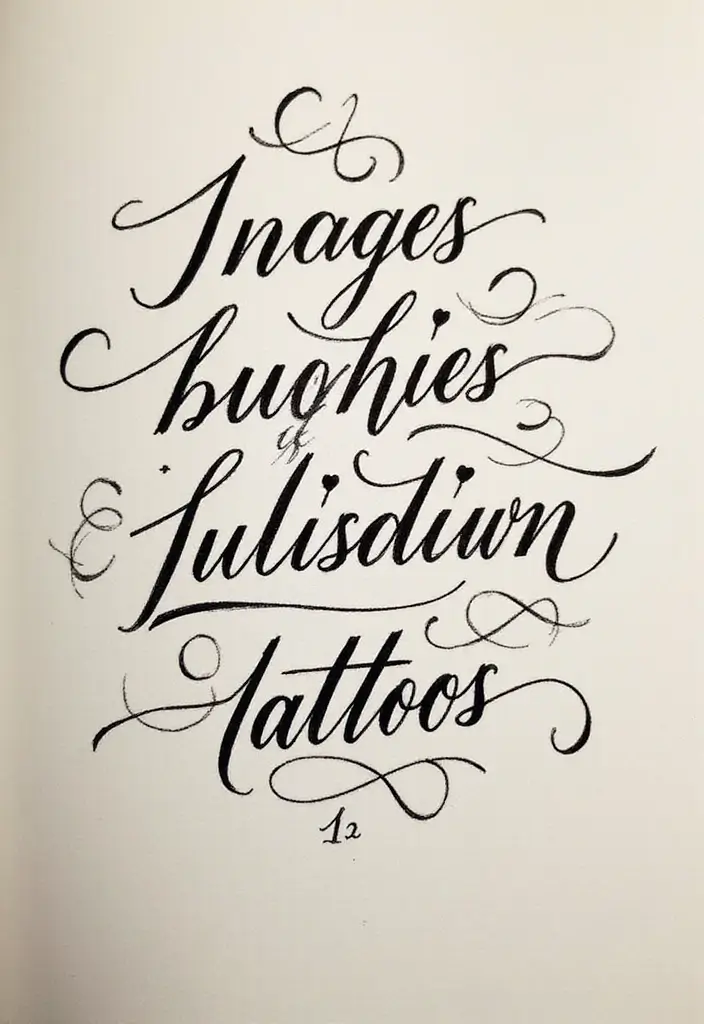 Inages
bughies
Lulisdiwn
tattoos
12